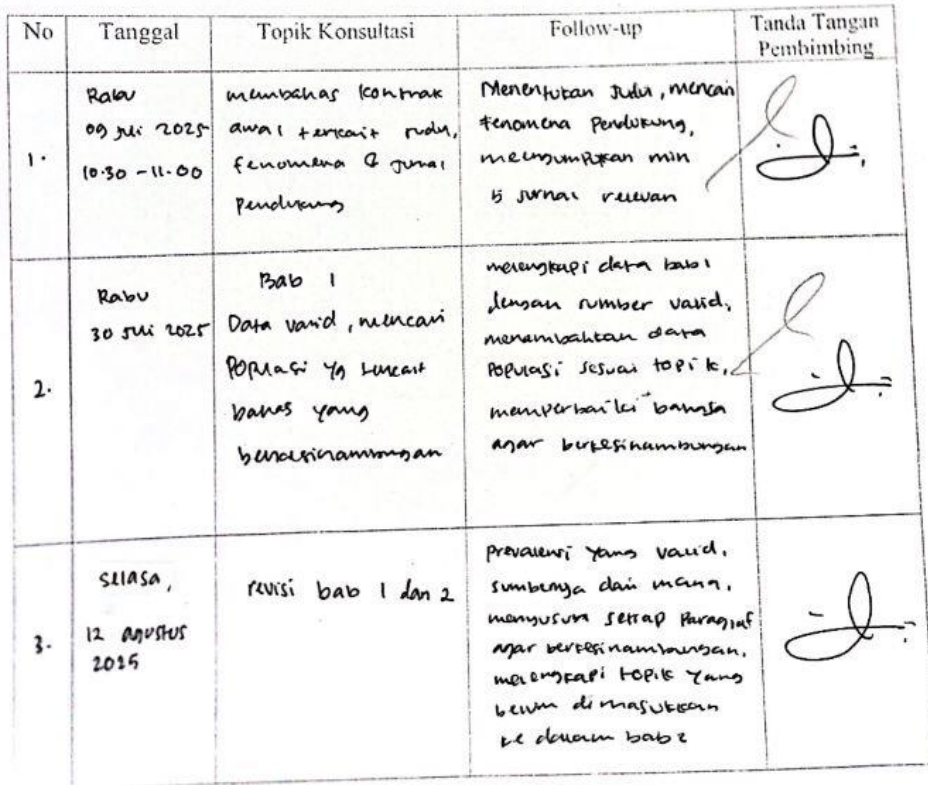 No
Tanggal
Topik Konsultasi
Follow-up
Tanda Tangan
Pembimbing
1.
Rabu
09 Juli 2025
10.30 - 11.00
membahas kontrak
awal terkait judul,
fenomena & jurnal
pendukung
Menentukan Judul, mencari
fenomena Pendukung,
mengumpulkan min
5 jurnal relevan
2.
Rabu
30 Juli 2025
Bab 1
Data valid, mencari
Populasi yg terkait
bahas yang
berkesinambungan
melengkapi data bab 1
dengan sumber valid,
menambahkan data
Populasi sesuai topik,
memperbaiki bahasa
agar berkesinambungan
3.
Selasa,
12 agustus
2025
revisi bab 1 dan 2
prevalensi yang valid,
sumbernya dari mana,
menyusun setiap Paragraf
agar berkesinambungan,
melengkapi topik yang
belum dimasukkan
ke dalam bab 2